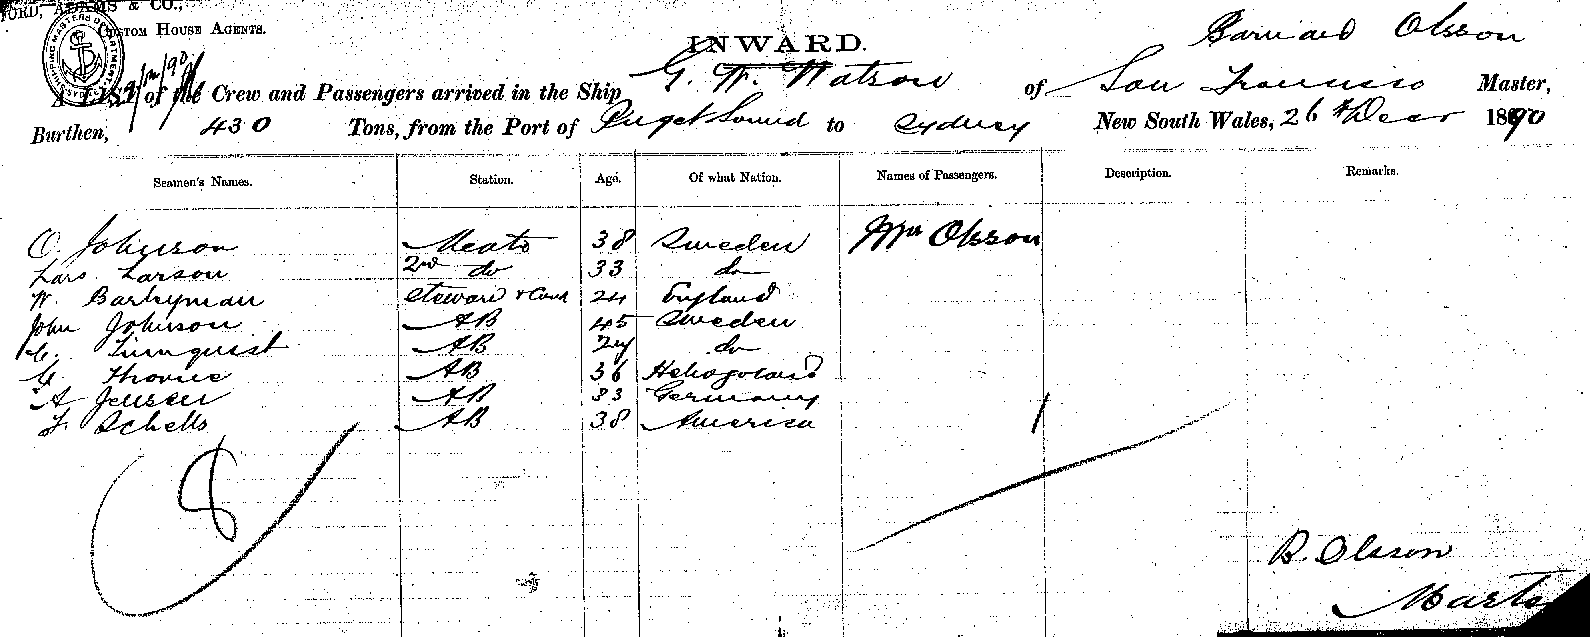 FORD, ADAMS & CO.,
CUSTOM HOUSE AGENTS.
SHIPPING MASTERS DEPARTMENT
INWARD.
Barnard Olsson
A LIST of the Crew and Passengers arrived in the Ship G. W. Watson of San Francisco Master,
Burthen, 430 Tons, from the Port of Puget Sound to Sydney New South Wales, 26th Decr 1890
Seamen's Names. Station. Age. Of what Nation. Names of Passengers. Description. Remarks.
O. Johnson Mate 38 Sweden Mrs Olsson
Lars Larson 2nd do 33 do
W. Barkyman Steward & Cook 24 England
John Johnson AB 45 Sweden
C. AB 24 do
AB 36 Heligoland
A Jensen AB 33 Germany
F. Schells AB 38 America
8
1
B. Olsson
Master